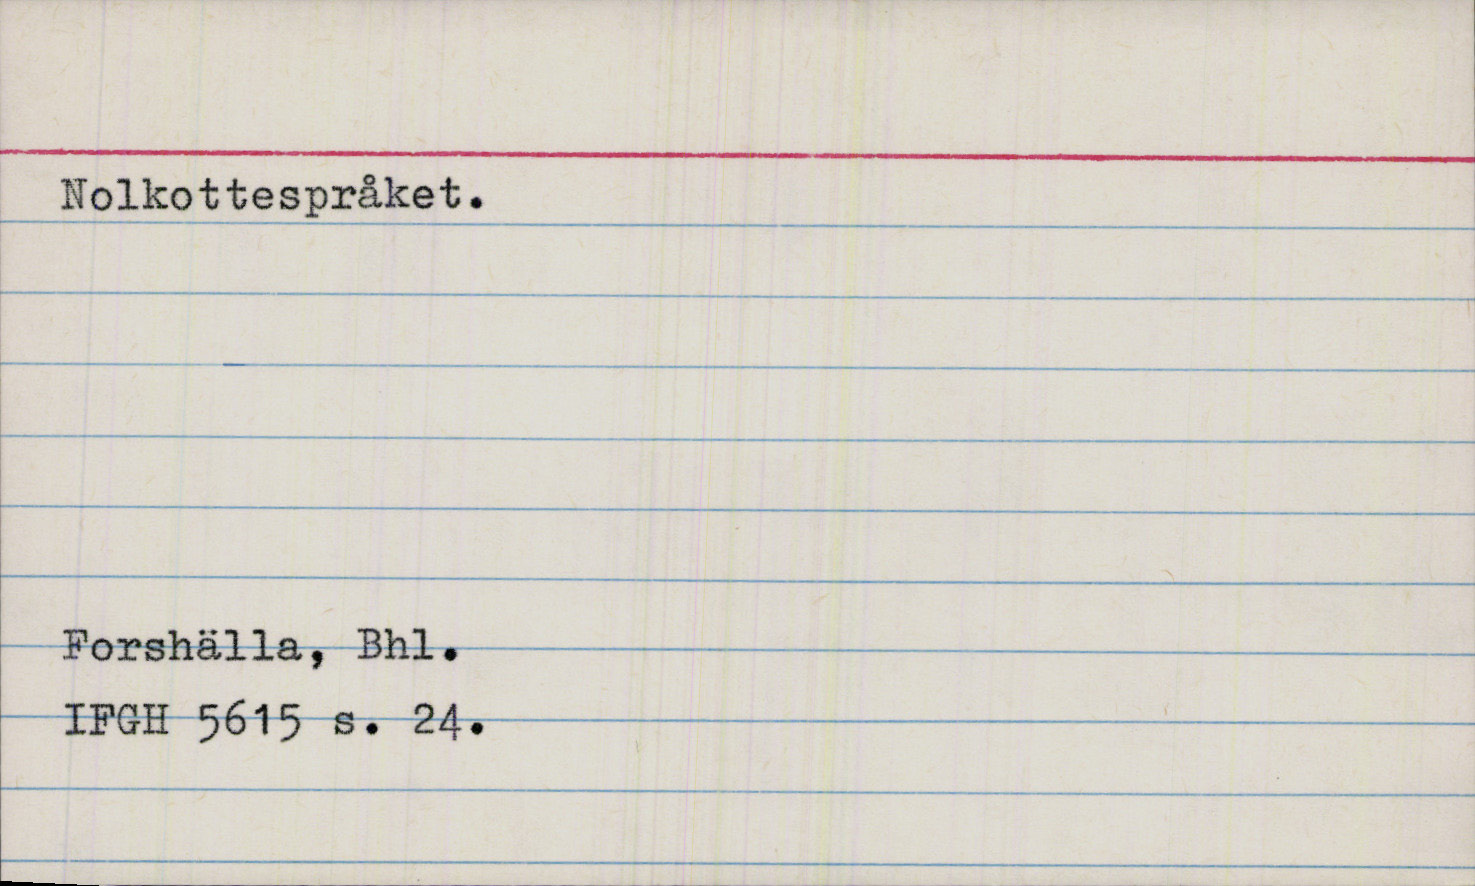 Nolkottespråket.
Forshälla, Bhl.
IFGH 5615 s. 24.